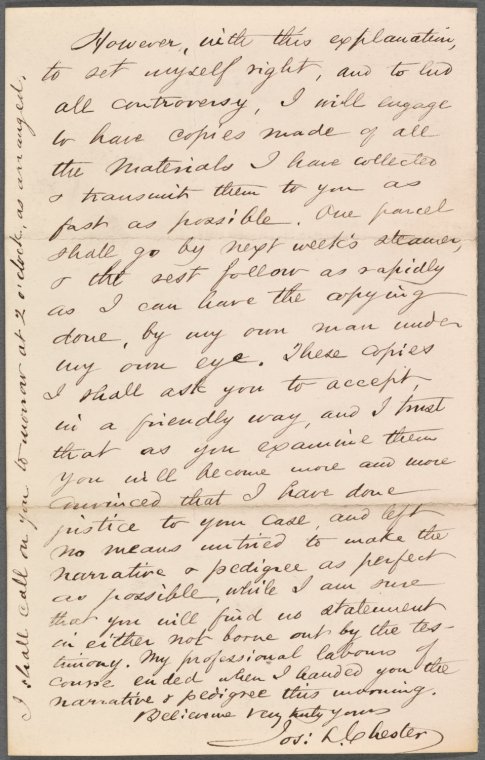 However, with this explanation,
to set myself right, and to end
all controversy, I will engage
to have copies made of all
the materials I have collected
& transmit them to you as
fast as possible. One parcel
shall go by next week's steamer,
& the rest follow as rapidly
as I can have the copying
done, by my own man under
my own eye. These copies
I shall ask you to accept,
in a friendly way, and I trust
that as you examine them
you will become more and more
convinced that I have done
justice to your case, and left
no means untried to make the
narrative & pedigree as perfect
as possible, while I am sure
that you will find no statement
in either not borne out by the tes-
timony. My professional labours of
course ended when I handed you the
narrative & pedigree this morning.
Believe me very truly yours
Jos: L. Chester
I shall call on you to morrow at 2 o'clock, as arranged.